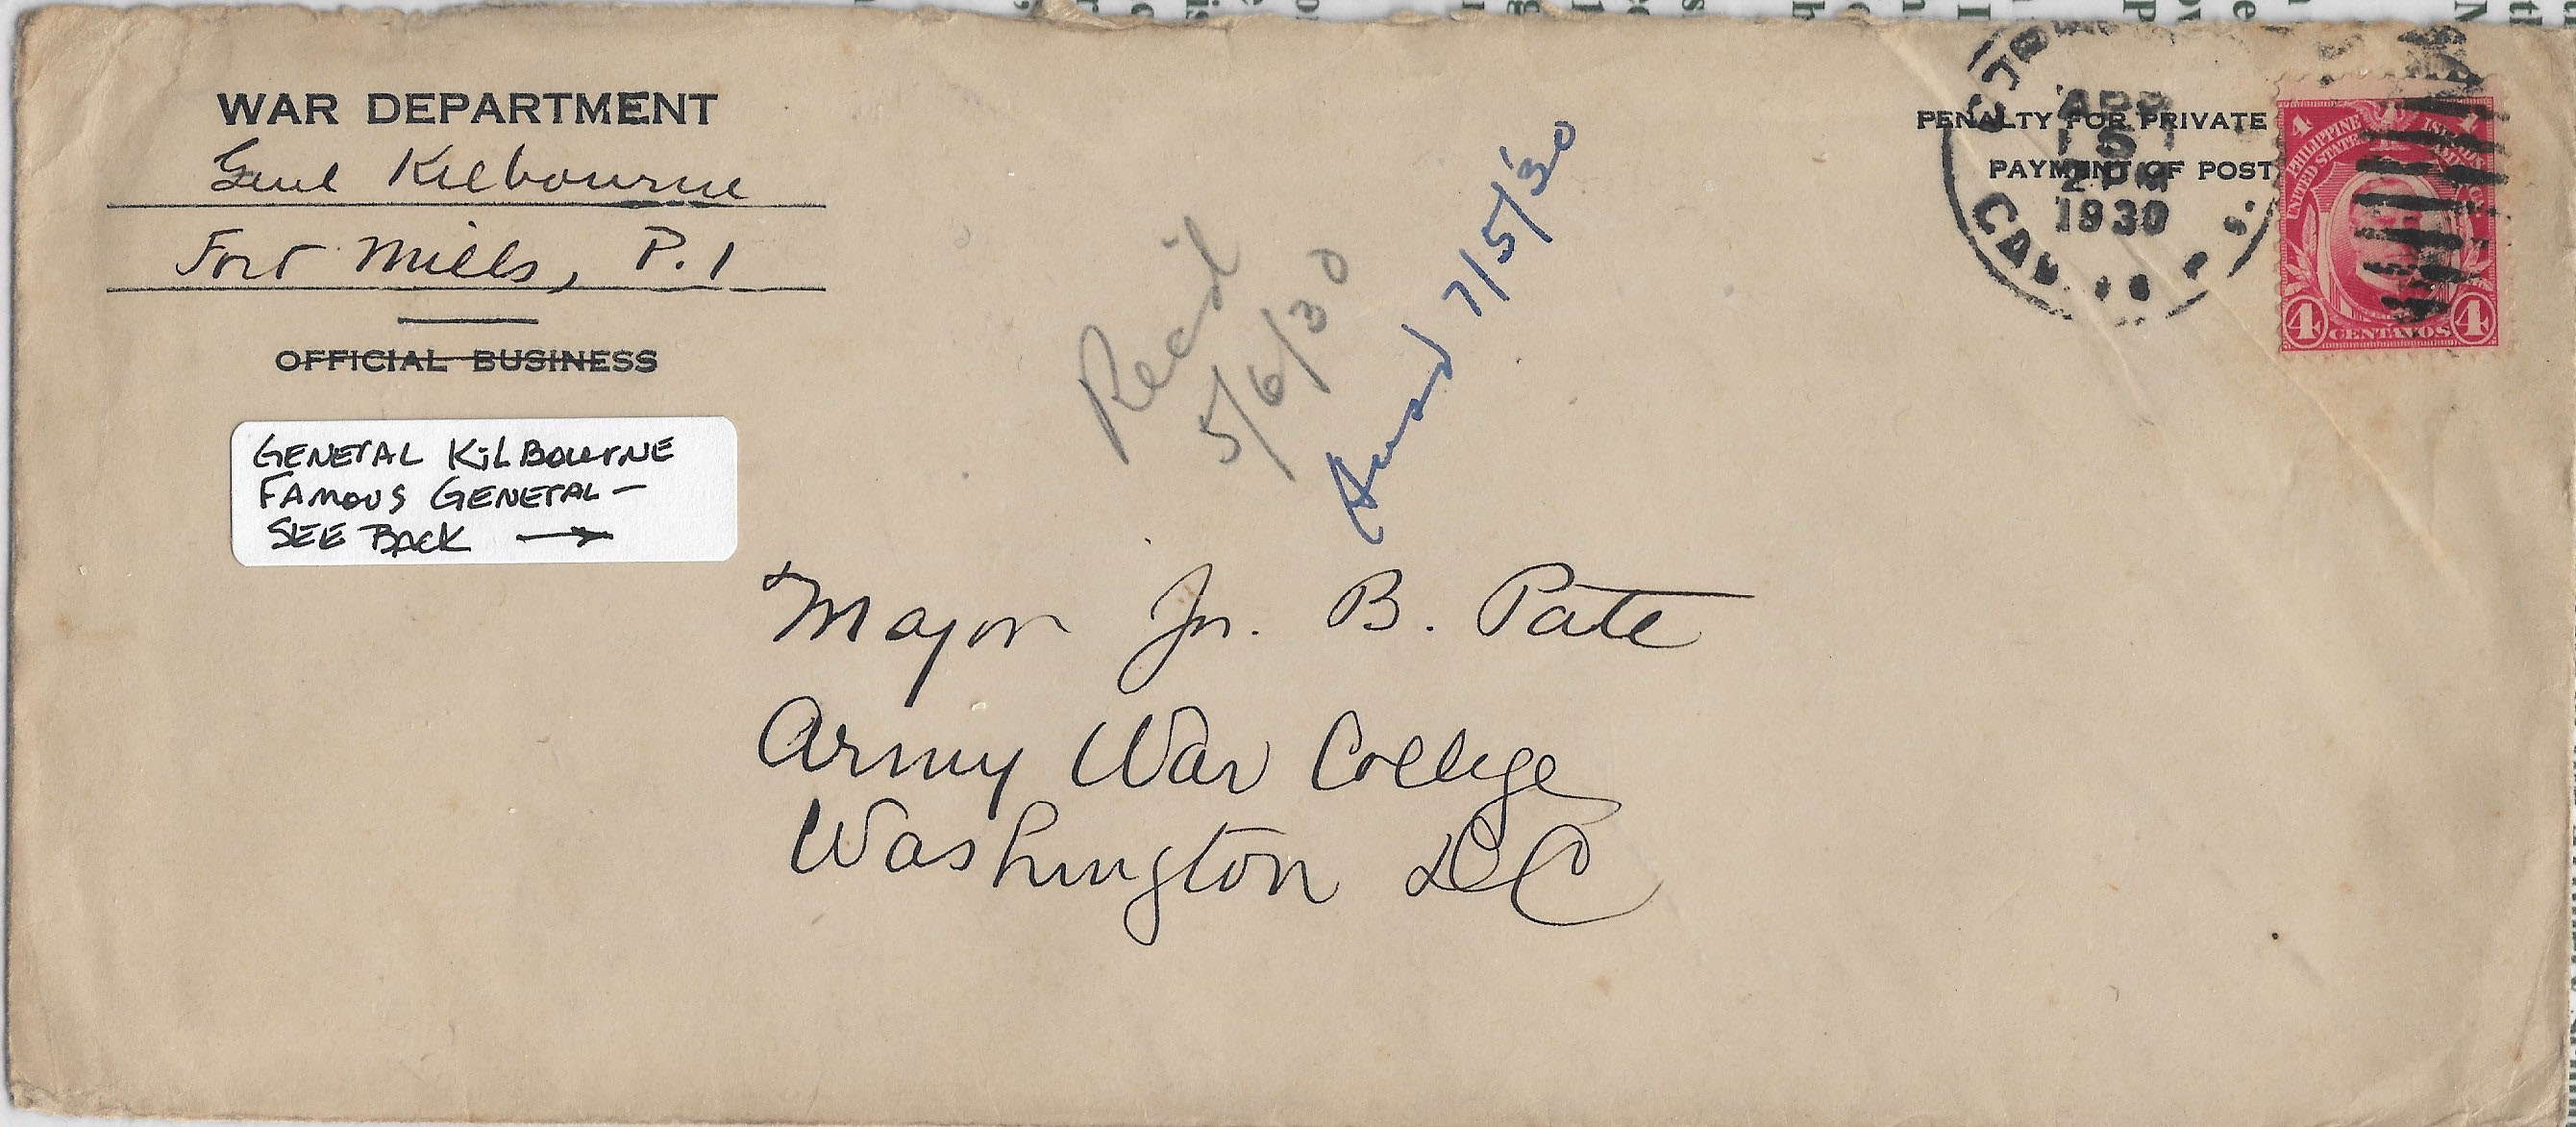 WAR DEPARTMENT
Genl Kilbourne
Fort Mills, P.I
OFFICIAL BUSINESS
GENERAL KILBOURNE
FAMOUS GENERAL —
SEE BACK →
Rec'd
5/6/30
Ansd 7/5/30
PENALTY FOR PRIVATE
PAYMENT OF POST
APR
2 PM
1930
CAV
P.
PHILIPPINE ISLANDS
UNITED STATES
4 CENTAVOS 4
Major Jn. B. Pate
Army War College
Washington DC